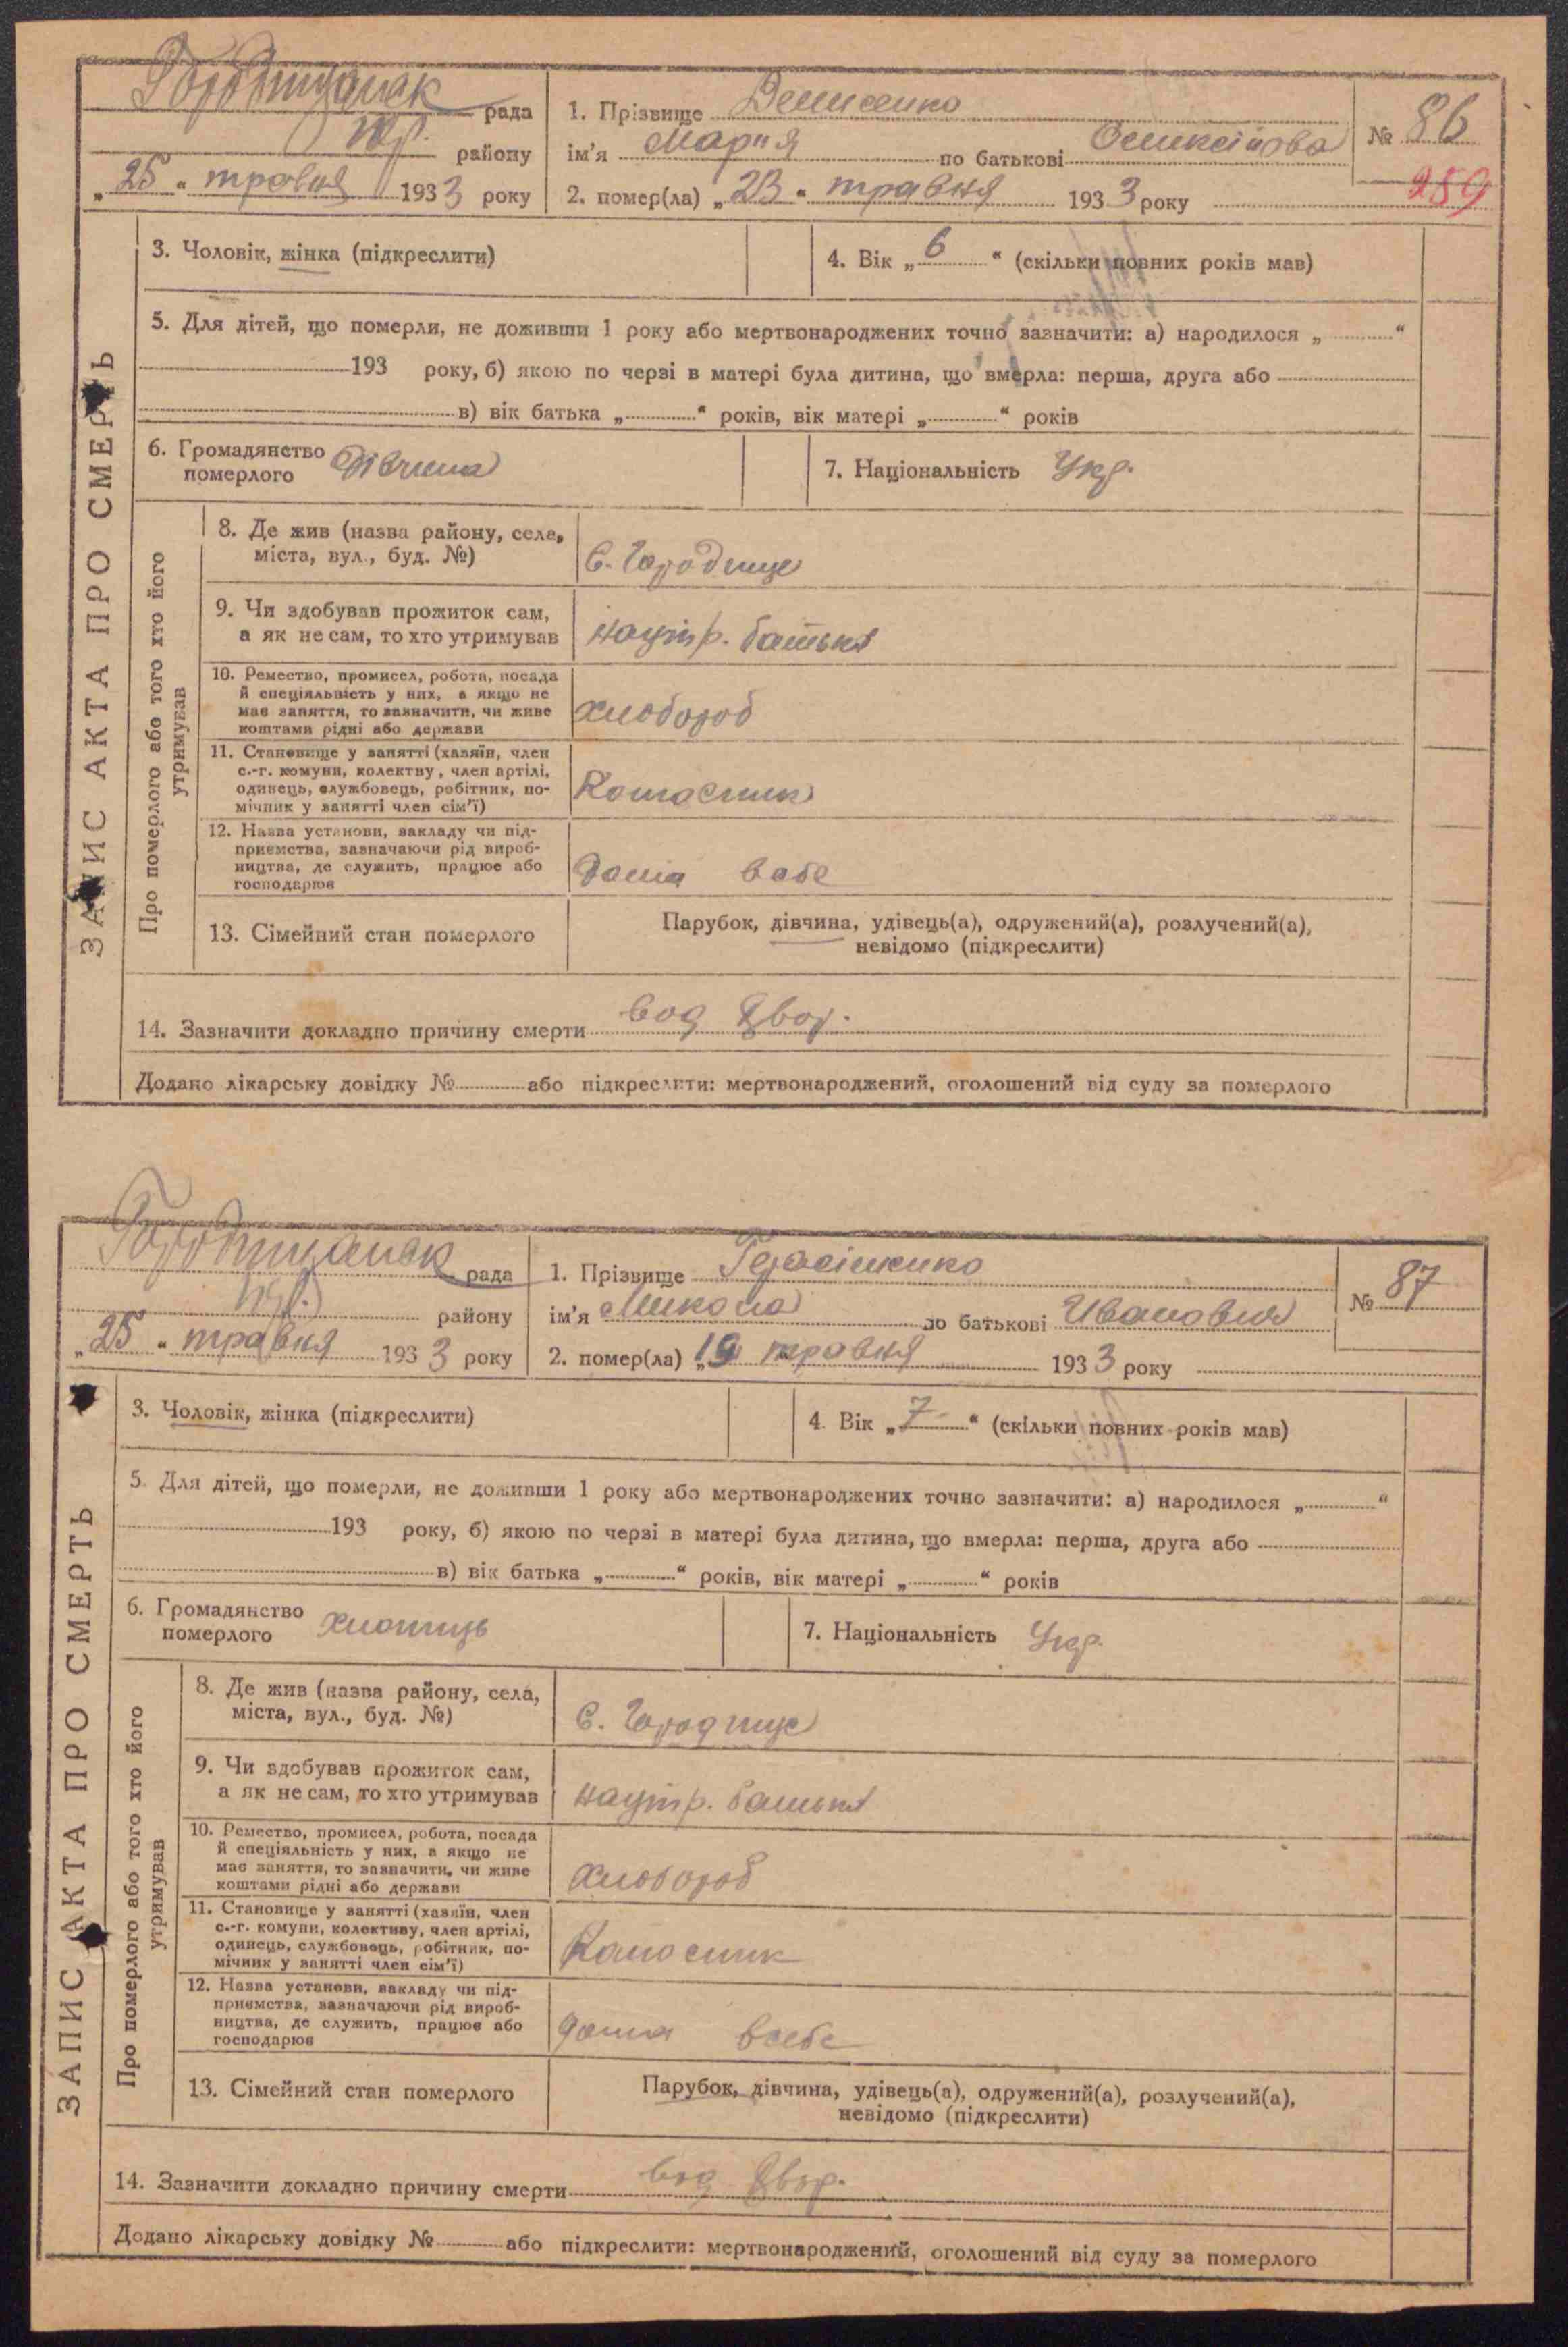 Городищанск рада
1. Прізвище Денисенко
№ 86
району
ім'я Мария по батькові
259
„25“ травня 1933 року
2. помер(ла) „23“ травня 1933 року
ЗАПИС АКТА ПРО СМЕРТЬ
3. Чоловік, жінка (підкреслити)
4. Вік „6“ (скільки повних років мав)
5. Для дітей, що померли, не доживши 1 року або мертвонароджених точно зазначити: а) народилося „ “
193 року, б) якою по черзі в матері була дитина, що вмерла: перша, друга або
в) вік батька „ “ років, вік матері „ “ років
6. Громадянство
померлого дівчина
7. Національність Укр.
Про померлого або того хто його
утримував
8. Де жив (назва району, села,
міста, вул., буд. №)
С. Городище
9. Чи здобував прожиток сам,
а як не сам, то хто утримував
наутр. батька
10. Ремество, промисел, робота, посада
й спеціяльність у них, а якщо не
має заняття, то зазначити, чи живе
коштами рідні або держави
хлібороб
11. Становище у занятті (хазяїн, член
с.-г. комуни, колектву, член артілі,
одинець, службовець, робітник, по-
мічник у занятті член сім'ї)
12. Назва установи, закладу чи під-
приємства, зазначаючи рід вироб-
ництва, де служить, працює або
господарює
дома в себе
13. Сімейний стан померлого
Парубок, дівчина, удівець(а), одружений(а), розлучений(а),
невідомо (підкреслити)
14. Зазначити докладно причину смерти
Додано лікарську довідку № або підкреслити: мертвонароджений, оголошений від суду за померлого
Городищанск рада
1. Прізвище Герасіменко
№ 87
району
ім'я Микола по батькові Иванович
„25“ травня 1933 року
2. помер(ла) „19 травня 1933 року
ЗАПИС АКТА ПРО СМЕРТЬ
3. Чоловік, жінка (підкреслити)
4. Вік „7“ (скільки повних років мав)
5. Для дітей, що померли, не доживши 1 року або мертвонароджених точно зазначити: а) народилося „ “
193 року, б) якою по черзі в матері була дитина, що вмерла: перша, друга або
в) вік батька „ “ років, вік матері „ “ років
6. Громадянство
померлого хлопиць
7. Національність Укр.
Про померлого або того хто його
утримував
8. Де жив (назва району, села,
міста, вул., буд. №)
С. Городище
9. Чи здобував прожиток сам,
а як не сам, то хто утримував
наутр. батька
10. Ремество, промисел, робота, посада
й спеціяльність у них, а якщо не
має заняття, то зазначити, чи живе
коштами рідні або держави
хлібороб
11. Становище у занятті (хазяїн, член
с.-г. комуни, колективу, член артілі,
одинець, службовець, робітник, по-
мічник у занятті член сім'ї)
12. Назва установи, закладу чи під-
приємства, зазначаючи рід вироб-
ництва, де служить, працює або
господарює
дома в себе
13. Сімейний стан померлого
Парубок, дівчина, удівець(а), одружений(а), розлучений(а),
невідомо (підкреслити)
14. Зазначити докладно причину смерти
Додано лікарську довідку № або підкреслити: мертвонароджений, оголошений від суду за померлого